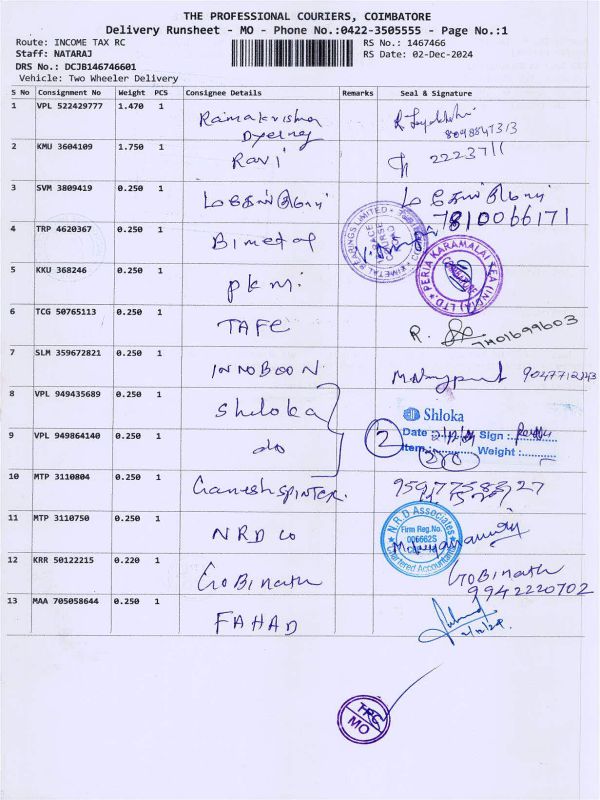 THE PROFESSIONAL COURIERS, COIMBATORE
Delivery Runsheet - MO - Phone No.:0422-3505555 - Page No.:1
Route: INCOME TAX RC
RS No.: 1467466
Staff: NATARAJ
RS Date: 02-Dec-2024
DRS No.: DCJB146746601
Vehicle: Two Wheeler Delivery
S No Consignment No Weight PCS Consignee Details Remarks Seal & Signature
1 VPL 522429777 1.470 1 Ramakrishna
8098847313
2 KMU 3604109 1.750 1 Ravi 2223711
3 SVM 3809419 0.250 1
7810066171
4 TRP 4620367 0.250 1 Bimetal
BIMETAL BEARINGS LIMITED
5 KKU 368246 0.250 1 PKM
PERIA KARAMALAI TEA (INDIA) LTD.
6 TCG 50765113 0.250 1 TAFE R.
7401699603
7 SLM 359672821 0.250 1 INNOBOON
8 VPL 949435689 0.250 1 Shloka
Shloka
Date : Sign :
9 VPL 949864140 0.250 1 do 2
Item : Weight :
10 MTP 3110804 0.250 1 Ganesh SPINTEX.
11 MTP 3110750 0.250 1 NRD CO
N.R.D Associates
Firm Reg.No.
006662S
Chartered Accountants
12 KRR 50122215 0.220 1 GoBinath GoBinath
9942220702
13 MAA 705058644 0.250 1 FAHAD
2/12/24
TRC
MO